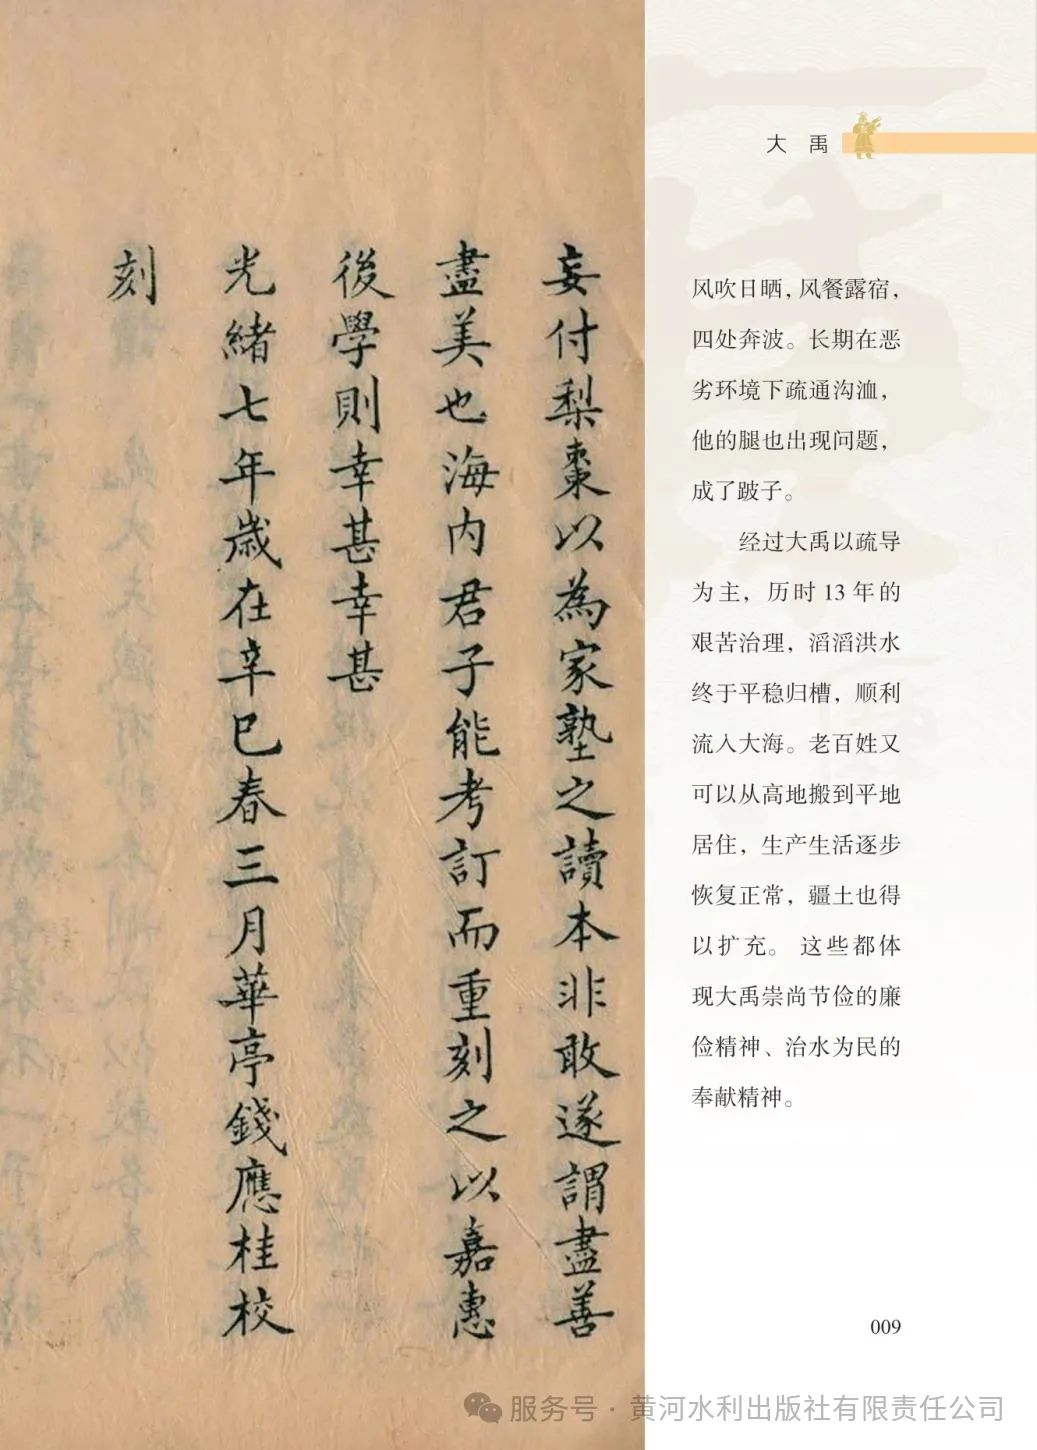 妄付梨棗以為家塾之讀本非敢遂謂盡善
盡美也海内君子能考訂而重刻之以嘉惠
後學則幸甚幸甚
光緒七年歲在辛巳春三月華亭錢應桂校
刻
大 禹
风吹日晒，风餐露宿，
四处奔波。长期在恶
劣环境下疏通沟洫，
他的腿也出现问题，
成了跛子。
经过大禹以疏导
为主，历时 13 年的
艰苦治理，滔滔洪水
终于平稳归槽，顺利
流入大海。老百姓又
可以从高地搬到平地
居住，生产生活逐步
恢复正常，疆土也得
以扩充。 这些都体
现大禹崇尚节俭的廉
俭精神、治水为民的
奉献精神。
009
服务号 · 黄河水利出版社有限责任公司